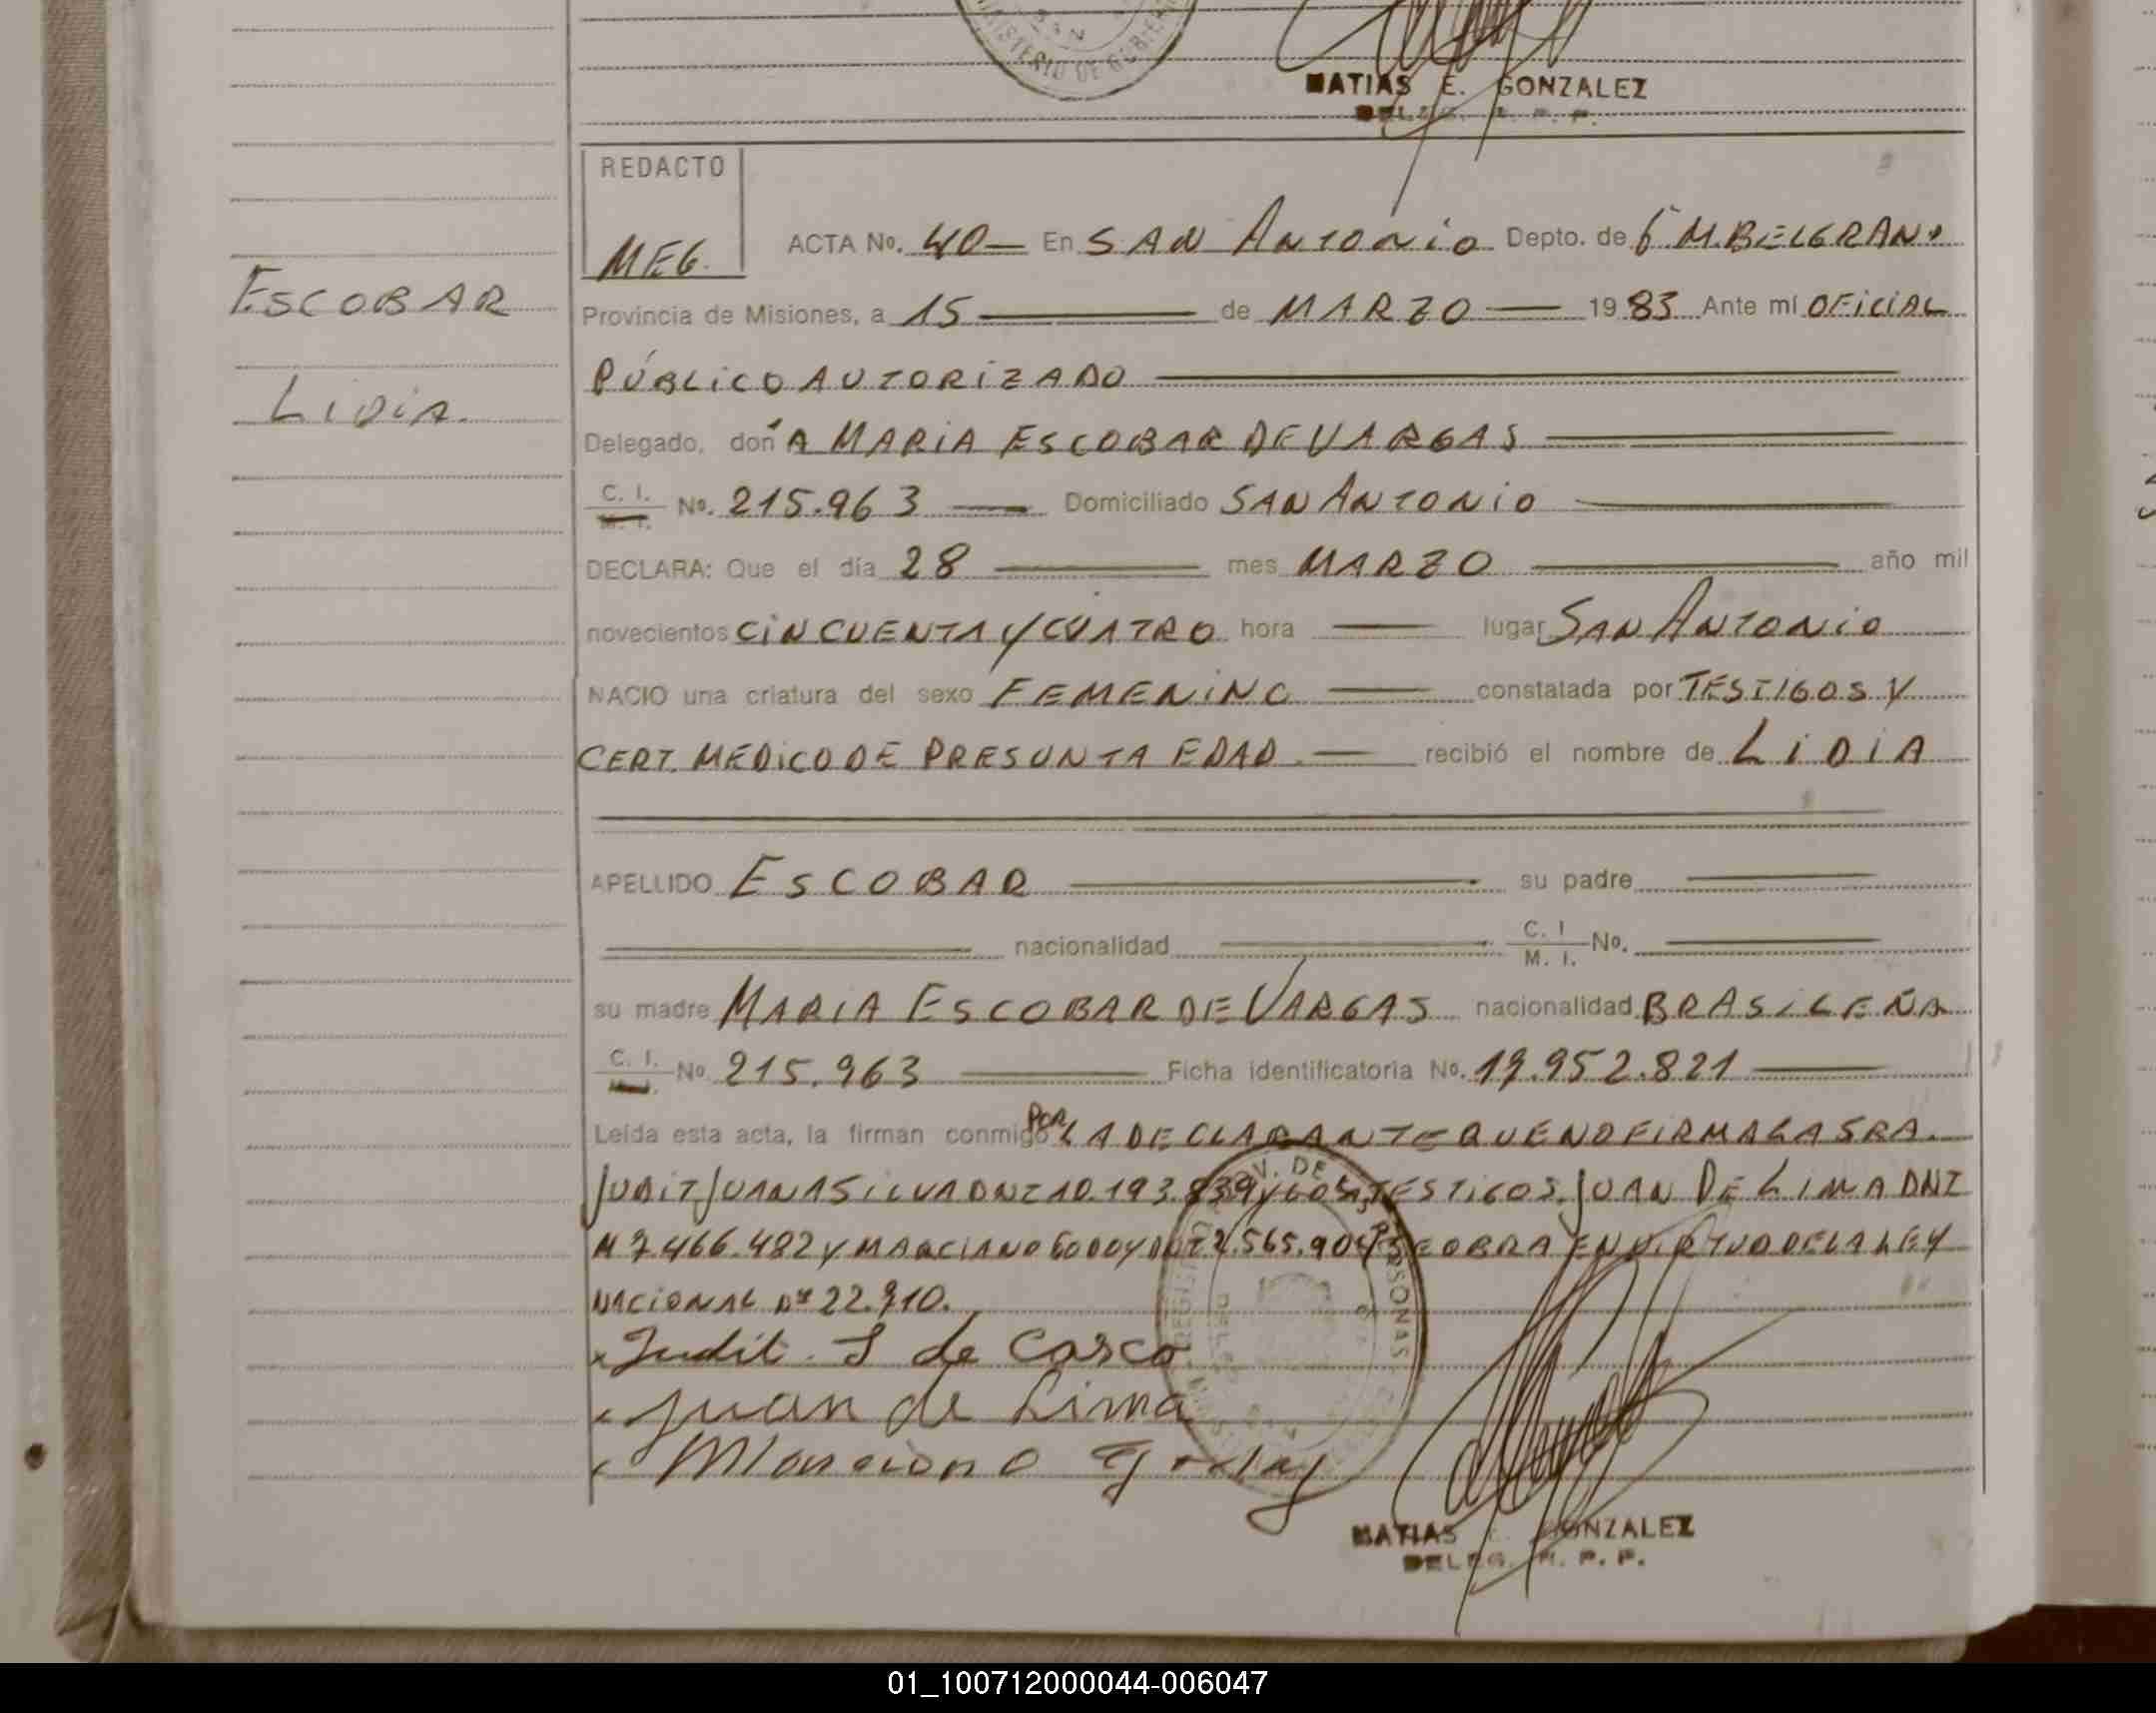 MINISTERIO DE GOBIERNO
MATIAS E. GONZALEZ
DELEG. R. P. P.
REDACTO
MEG.
ACTA No. 40 En SAN ANTONIO Depto. de G M. BELGRANO
ESCOBAR
Provincia de Misiones, a 15 de MARZO 1983 Ante mí OFICIAL
PÚBLICO AUTORIZADO
LIDIA.
Delegado, doñA MARIA ESCOBAR DE VARGAS
C. I. M. I. No. 215.963 Domiciliado SAN ANTONIO
DECLARA: Que el día 28 mes MARZO año mil
novecientos CINCUENTA Y CUATRO hora lugar SAN ANTONIO
NACIO una criatura del sexo FEMENINO constatada por TESTIGOS Y
CERT. MEDICO DE PRESUNTA EDAD. recibió el nombre de LIDIA
APELLIDO ESCOBAR su padre
nacionalidad C. I. M. I. No.
su madre MARIA ESCOBAR DE VARGAS nacionalidad BRASILEÑA
C. I. No. 215.963 Ficha identificatoria No. 19.952.821
Leída esta acta, la firman conmigo POR LA DECLARANTE QUE NO FIRMA LA SRA.
JUDIT JUANA SILVA DNI 10.193.839 Y LOS TESTIGOS JUAN DE LIMA DNI
M 7.466.482 Y MARCIANO GODOY DNI 2.565.904 SE OBRA EN VIRTUD DE LA LEY
NACIONAL Nº 22.910.
Judit S de Casco
Juan de Lima
Marciano Godoy
PROV. DE PERSONAS
MATIAS E. GONZALEZ
DELEG. R. P. P.
01_100712000044-006047